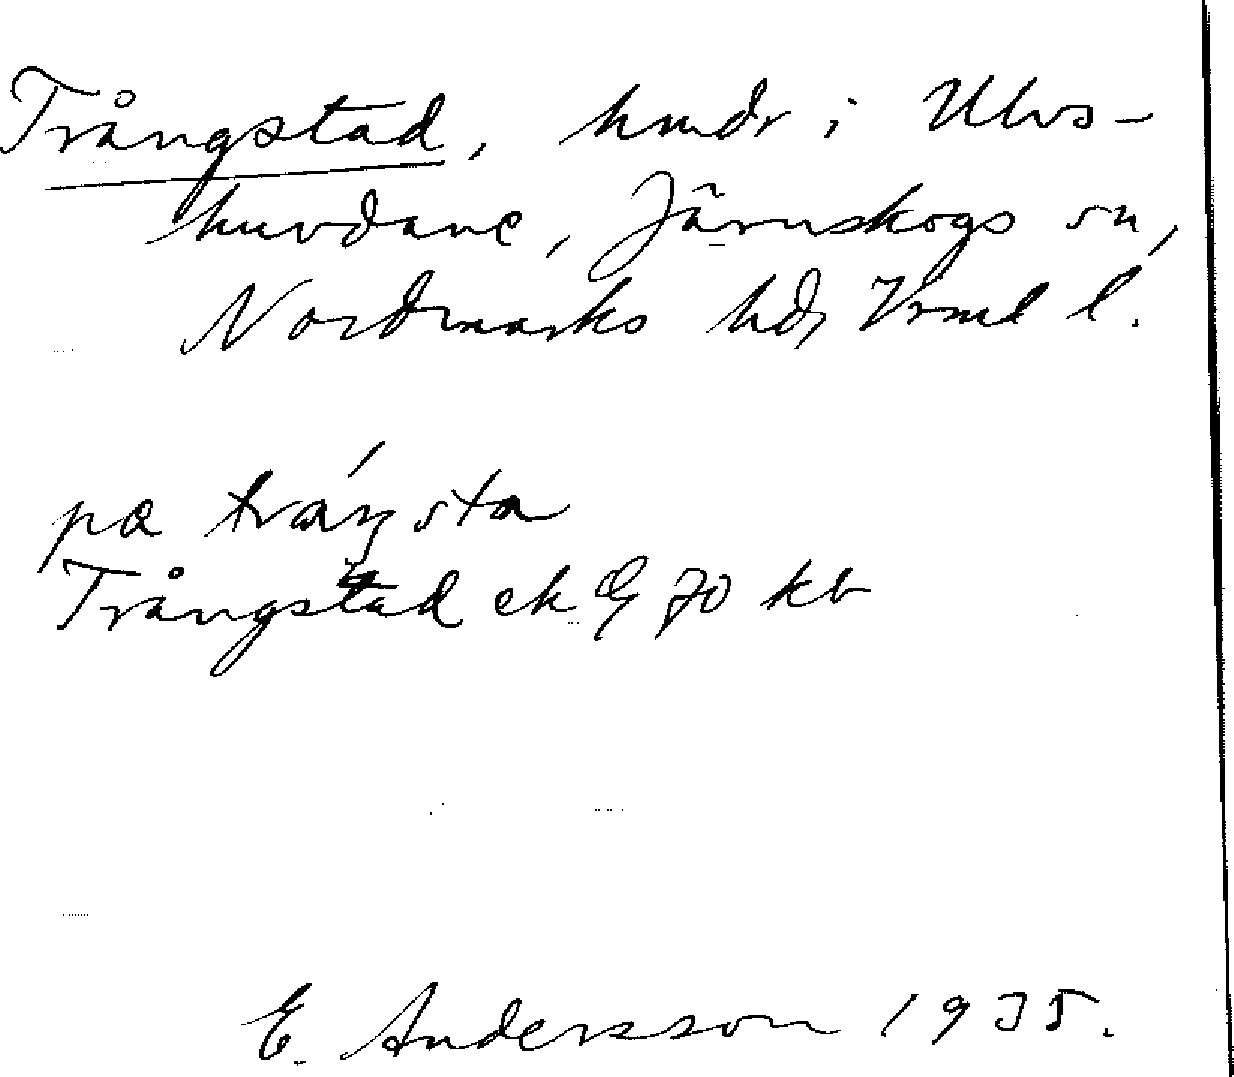 Trångstad, hmdr i Ulvs-
huvdane, Järnskogs sn,
Nordmarks hd, Vrml l.
pa tráŋsta
Trångstad ek G 70 kb
E. Andersson 1935.